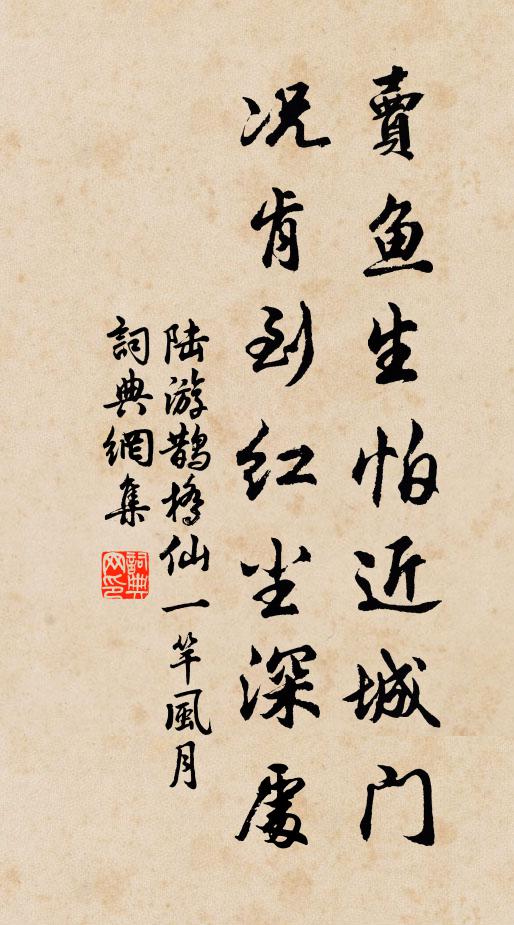 賣鱼生怕近城门
况肯到红尘深處
陆游鹊橋仙一竿風月
詞典網集
詞典网印